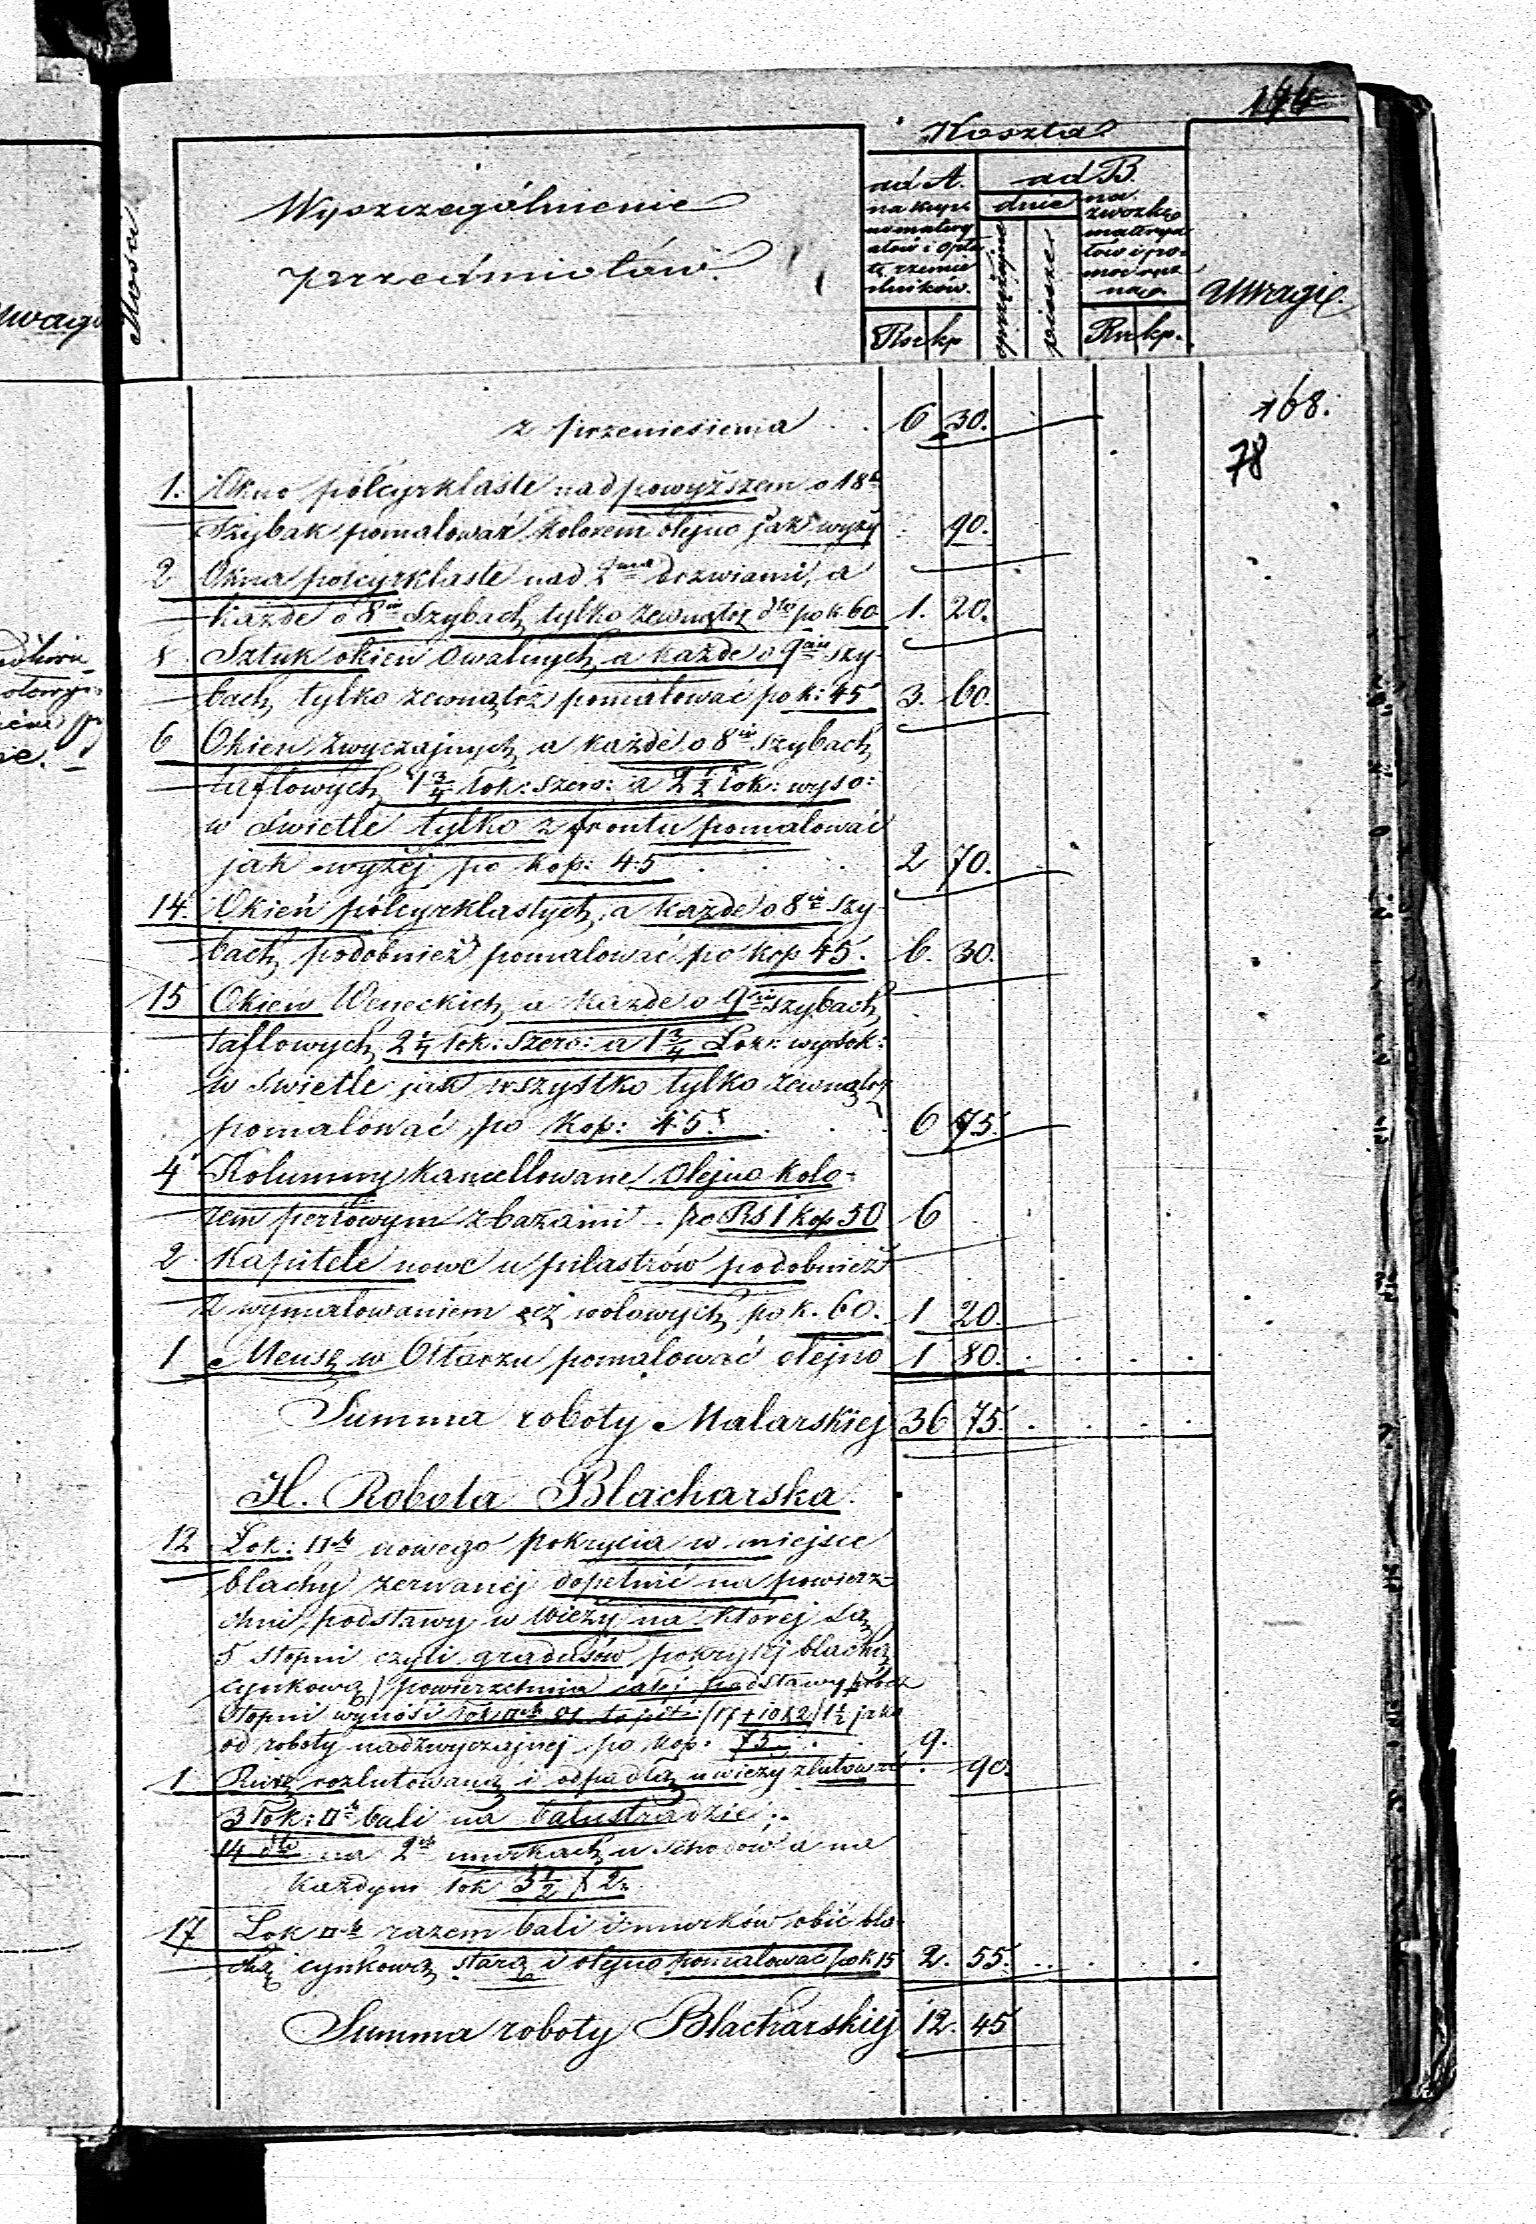 144
Koszta
Ilości
Wyszczególnienie
przedmiotów.
ad A.
na kupno
materyałów
i opła
tę rzemie
ślników.
ad B
dnie
sprzężajne
piesze
na
zwózkę
materya
łów i po-
moc ręcz
ną.
Rsr kp
Rsr kp.
Uwagi.
Uwagi
z przeniesienia . . 6 30.
168.
78
1. Okno półcyrklaste nad powyższem o 18tu
Szybak pomalować kolorem olejno jak wyżej . 90.
2 Okna półcyrklaste nad 2ma drzwiami, a
każde o 8iu Szybach tylko zewnątrz dto po k 60 1. 20.
8. Sztuk okien Owalnych, a każde o 9ciu szy-
bach, tylko zewnątrz pomalować po k: 45 3. 60.
6 Okien zwyczajnych a każde o 8iu szybach
taflowych, 1 3/4 łok: szero: a 2 1/2 łok: wyso:
w świetle tylko z frontu pomalować
jak wyżej po kop: 45 . . . 2 70.
14. Okień półcyrklastych, a każde o 8iu szy-
bach, podobnież pomalować po kop 45. 6. 30.
15 Okień Weneckich, a każde o 9ciu szybach
taflowych, 2 1/4 łok: szero: a 1 3/4 Łok: wysok:
w świetle jak wszystko tylko zewnątrz
pomalować, po kop: 45. . . . 6 75.
4 Kolumny kancellowane olejno kolo-
rem perłowym z bazami . po RS 1 kop 50 6
2. Kapitele nowe u pilastrów podobnież
z wymalowaniem ócz wołowych po k. 60. 1 20.
1 Mensę w Ołtarzu pomalować olejno 1 80.
Summa roboty Malarskiej 36 75.
H. Robota Blacharska.
12 Łok: □ch nowego pokrycia w miejsce
blachy zerwanej dopełnić na powierz-
chni podstawy w wieży na której są
5 stopni czyli gradusów pokrytej blachą
cynkową / powierzchnia całej podstawy prócz
Stopni wynosi łok □ch to jest: (17+10×2) 1 1/2 jako
od roboty nadzwyczajnej po kop: 75. . . 9.
1 Rurę rozlutowaną i odpadłą u wieży zlutować . 90.
3 łok: □ch bali na balustradzie . .
14 dto na 2ch murkach u schodów a na
każdym łok 3 1/2 × 2.
17 Łok □ch razem bali i murków obić bla-
chą cynkową starą i olejno pomalować po k 15 2. 55.
Summa roboty Blacharskiej 12. 45